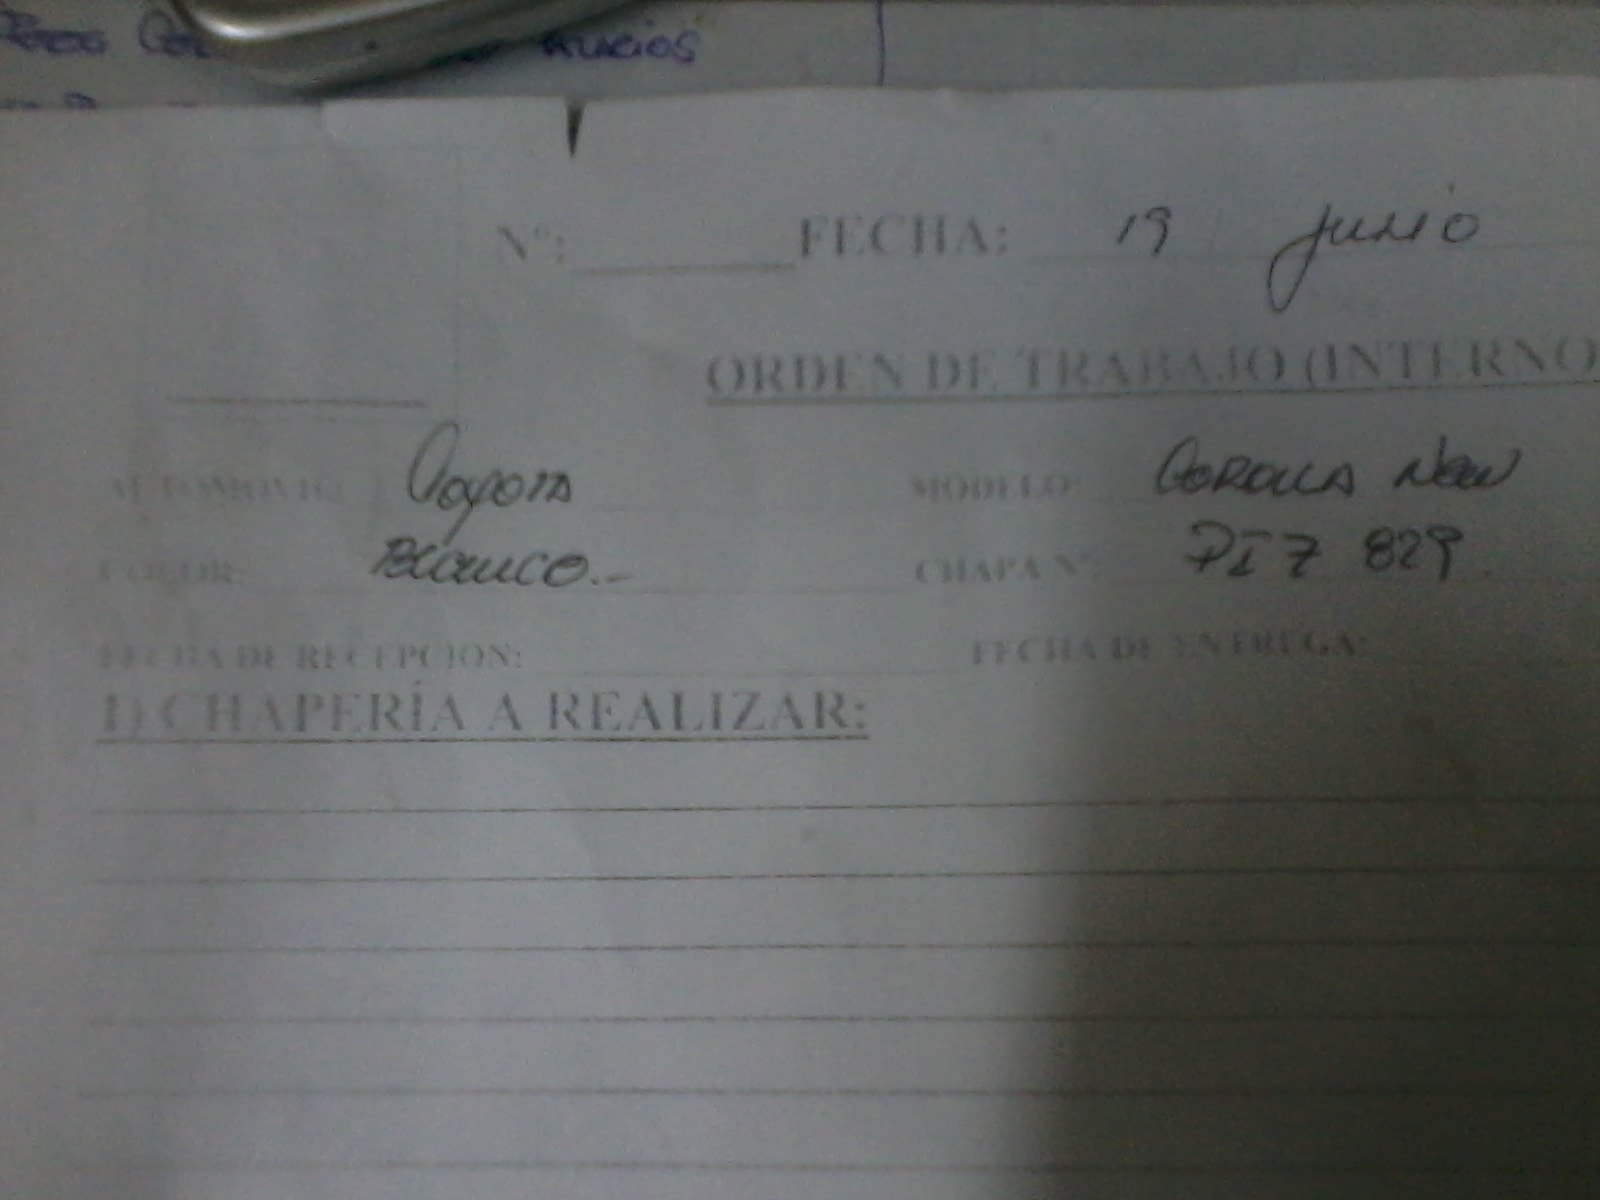 Nº: FECHA: 19 junio
ORDEN DE TRABAJO (INTERNO)
AUTOMOVIL: Toyota MODELO: COROLLA New
COLOR: Blanco.- CHAPA Nº: 829
FECHA DE RECEPCION: FECHA DE ENTREGA:
1) CHAPERÍA A REALIZAR: